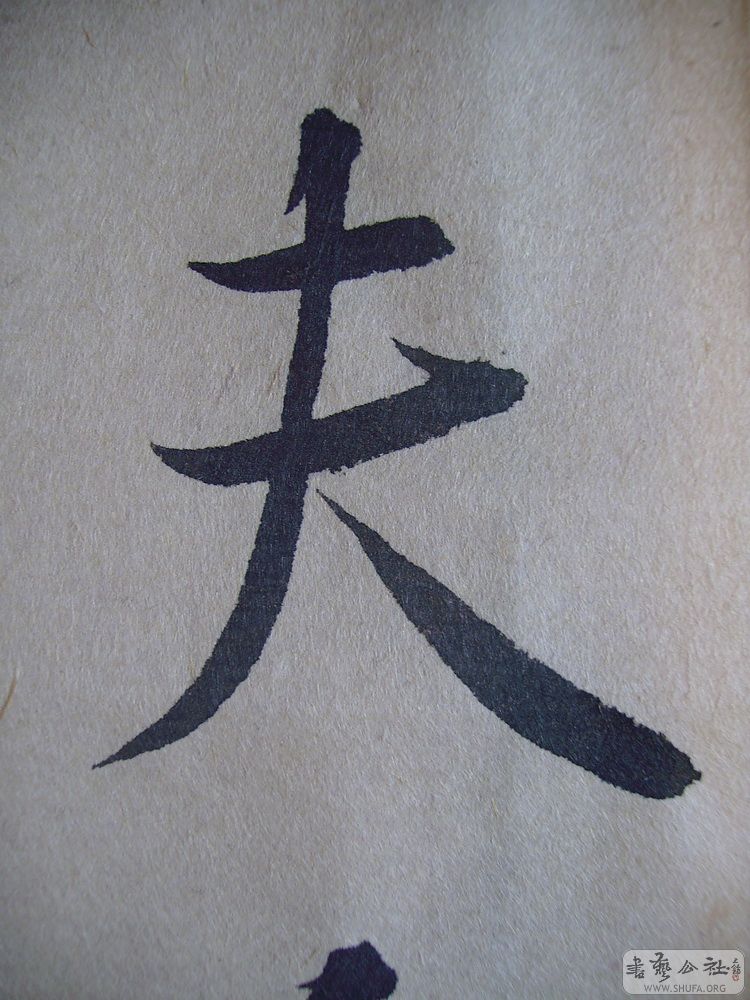 夫
書藝公社
WWW.SHUFA.ORG